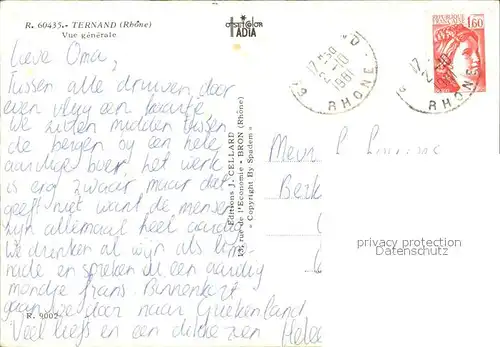 R. 60435.- TERNAND (Rhône)
Vue générale
TADIA
REPUBLIQUE FRANÇAISE
1,60
17 H 30
2-10
1981
RHONE
17
2-10
RHONE
Lieve Oma,
Tussen alle druiven door
even vlug een kaartje
we zitten midden tussen
de bergen op een hele
aardige boer, het werk
is erg zwaar maar dat
geeft niet want de mensen
zijn allemaal heel aardig
We drinken al wijn als limo-
nade en spreken al een aardig
mondje frans. Binnenkort
gaan we door naar Griekenland
Veel liefs en een dikke zoen Helee
Editions J. CELLARD
13, rue de l'Economie - BRON (Rhône)
« Copyright By Spadem »
Mevr
Berk
privacy protection
Datenschutz
R. 9002